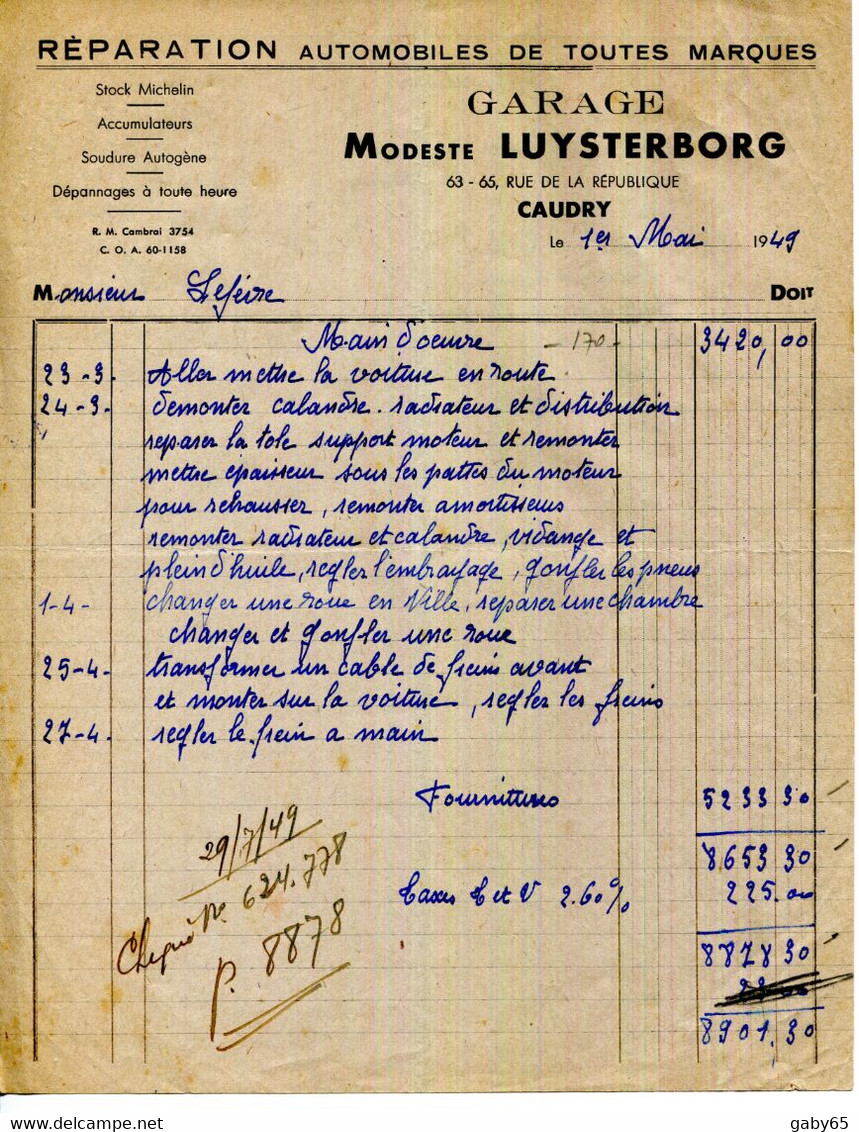 RÈPARATION AUTOMOBILES DE TOUTES MARQUES
Stock Michelin
Accumulateurs
Soudure Autogène
Dépannages à toute heure
R. M. Cambrai 3754
C. O. A. 60-1158
GARAGE
MODESTE LUYSTERBORG
63 - 65, RUE DE LA RÉPUBLIQUE
CAUDRY
Le 1er Mai 1949
Monsieur Lefévre DOIT
Main d'oeuvre - 170 - 3420,00
23-3. Aller mettre la voiture en route
24-3. demonter calandre. radiateur et distribution
reparer la tole support moteur et remonter
mettre epaisseur sous les pattes du moteur
pour rehausser, remonter amortisseurs
remonter radiateur et calandre, vidange et
plein d'huile, regler l'embrayage, gonfler les pneus
1-4- changer une roue en Ville, reparer une chambre
changer et gonfler une roue
25-4. transformer un cable de freins avant
et monter sur la voiture, regler les freins
27-4. regler le frein a main
Fournitures 5233 30
8653 30
Taxes T et V 2.60% 225.00
8878 30
22 00
8901.30
29/7/49
Chèque No 624.778
P. 8878
delcampe.net
gaby65